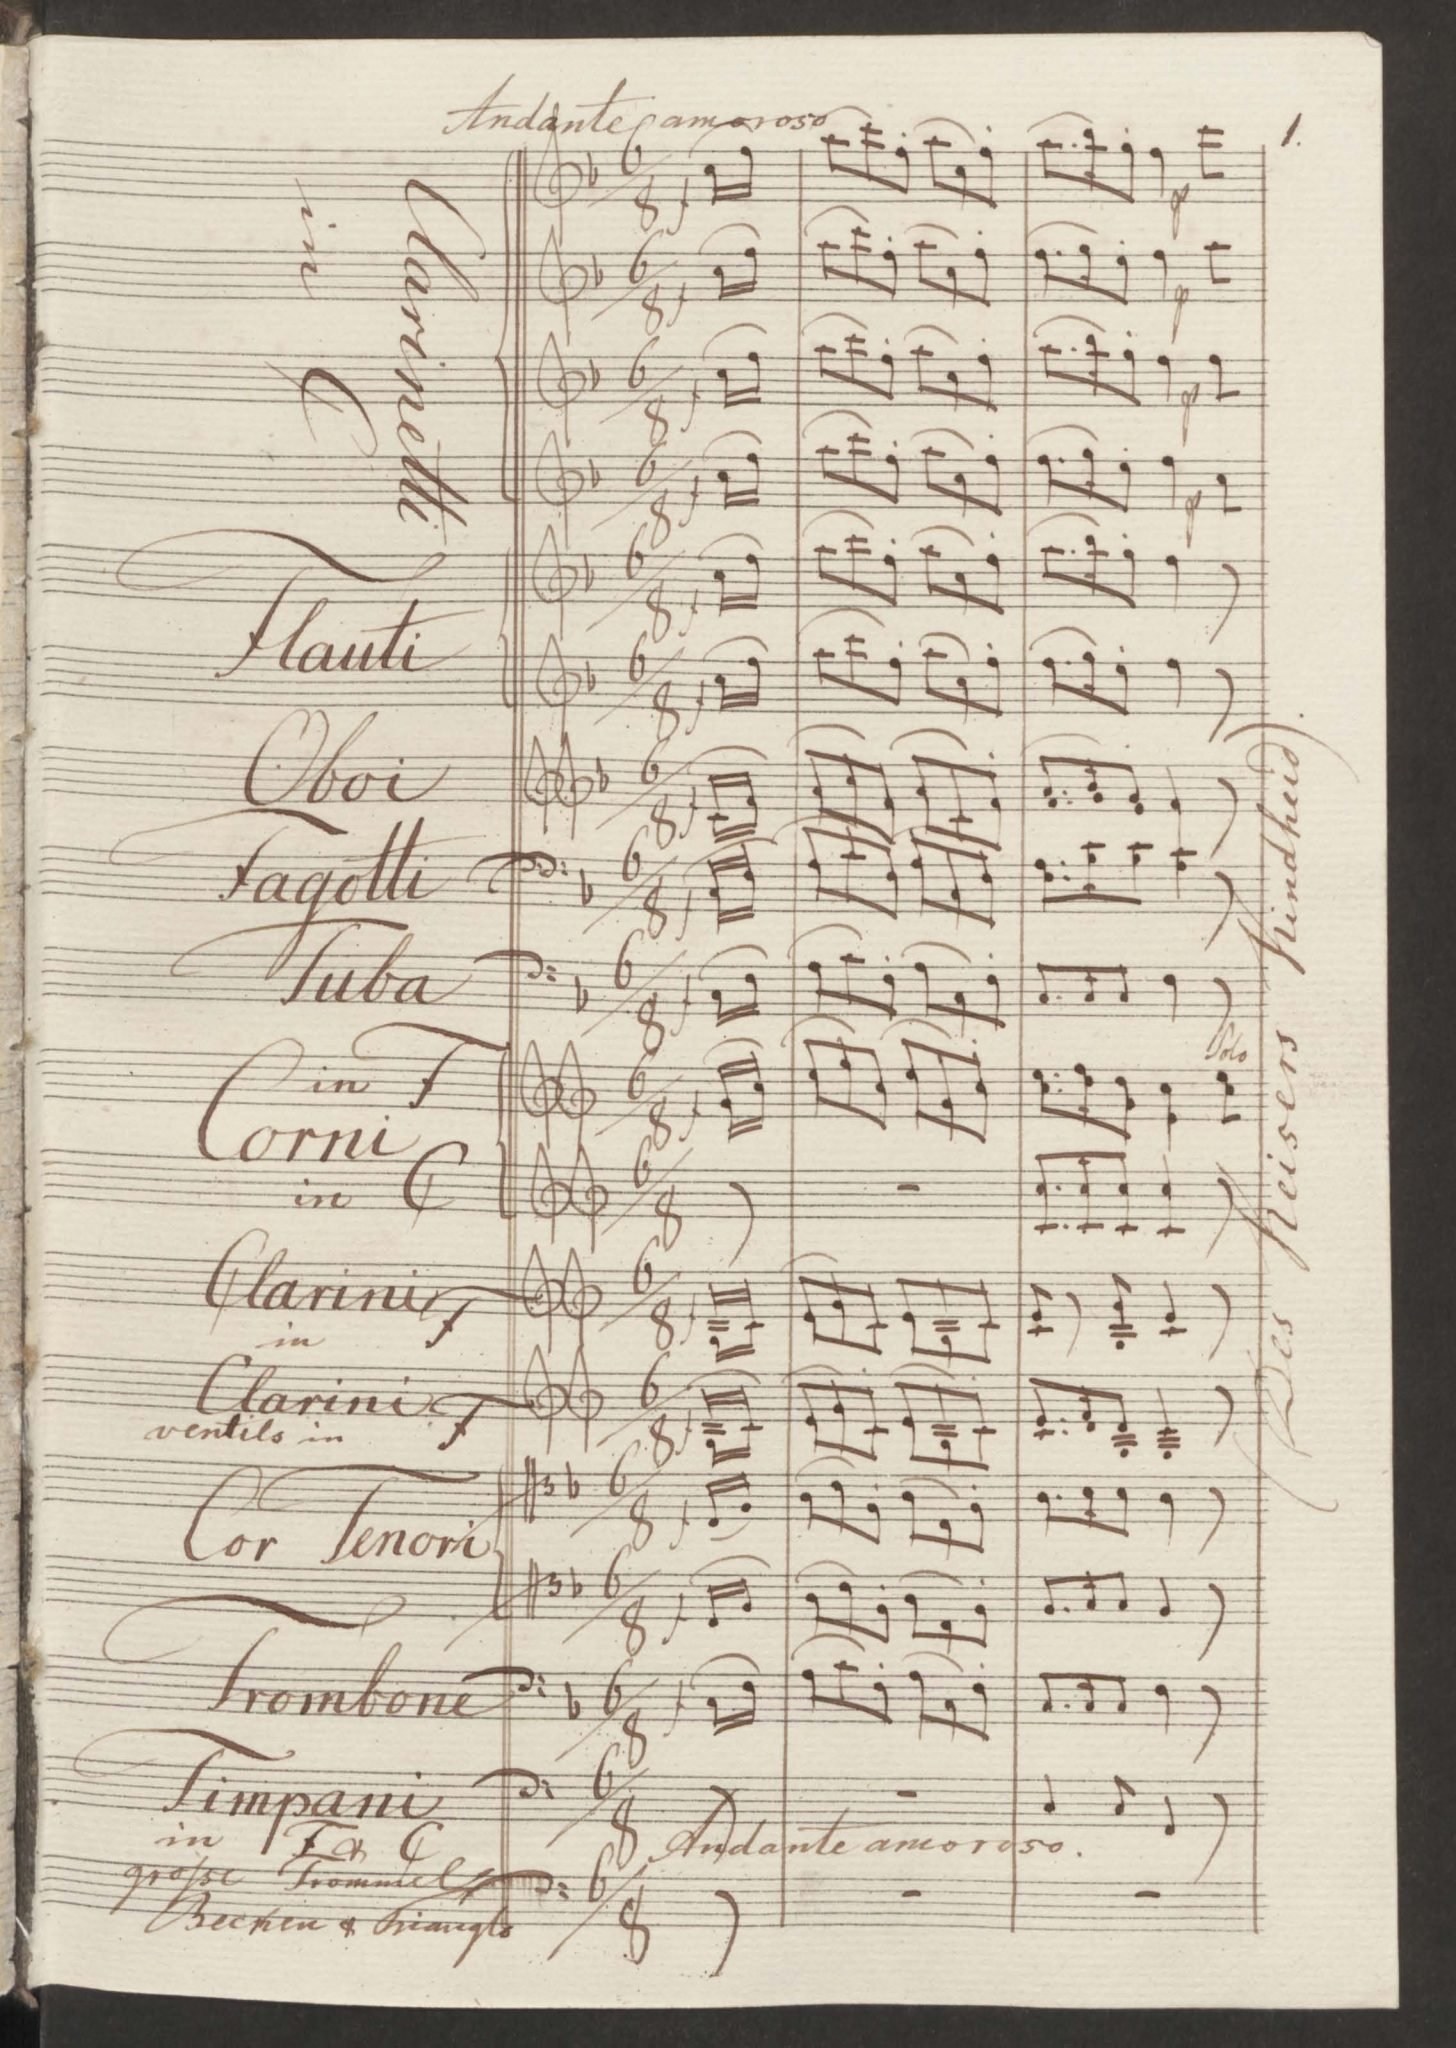 Andante amoroso
1.
Clarinetti
in
C
Flauti
Oboi
Fagotti
Tuba
in F
Corni
Solo
in C
Clarini
in F
Clarini
ventils in F
Cor Tenori
Trombone
Timpani
in F & C
Andante amoroso.
große Trommel
Becken & Triangls
(Des Keisers Kindheid).